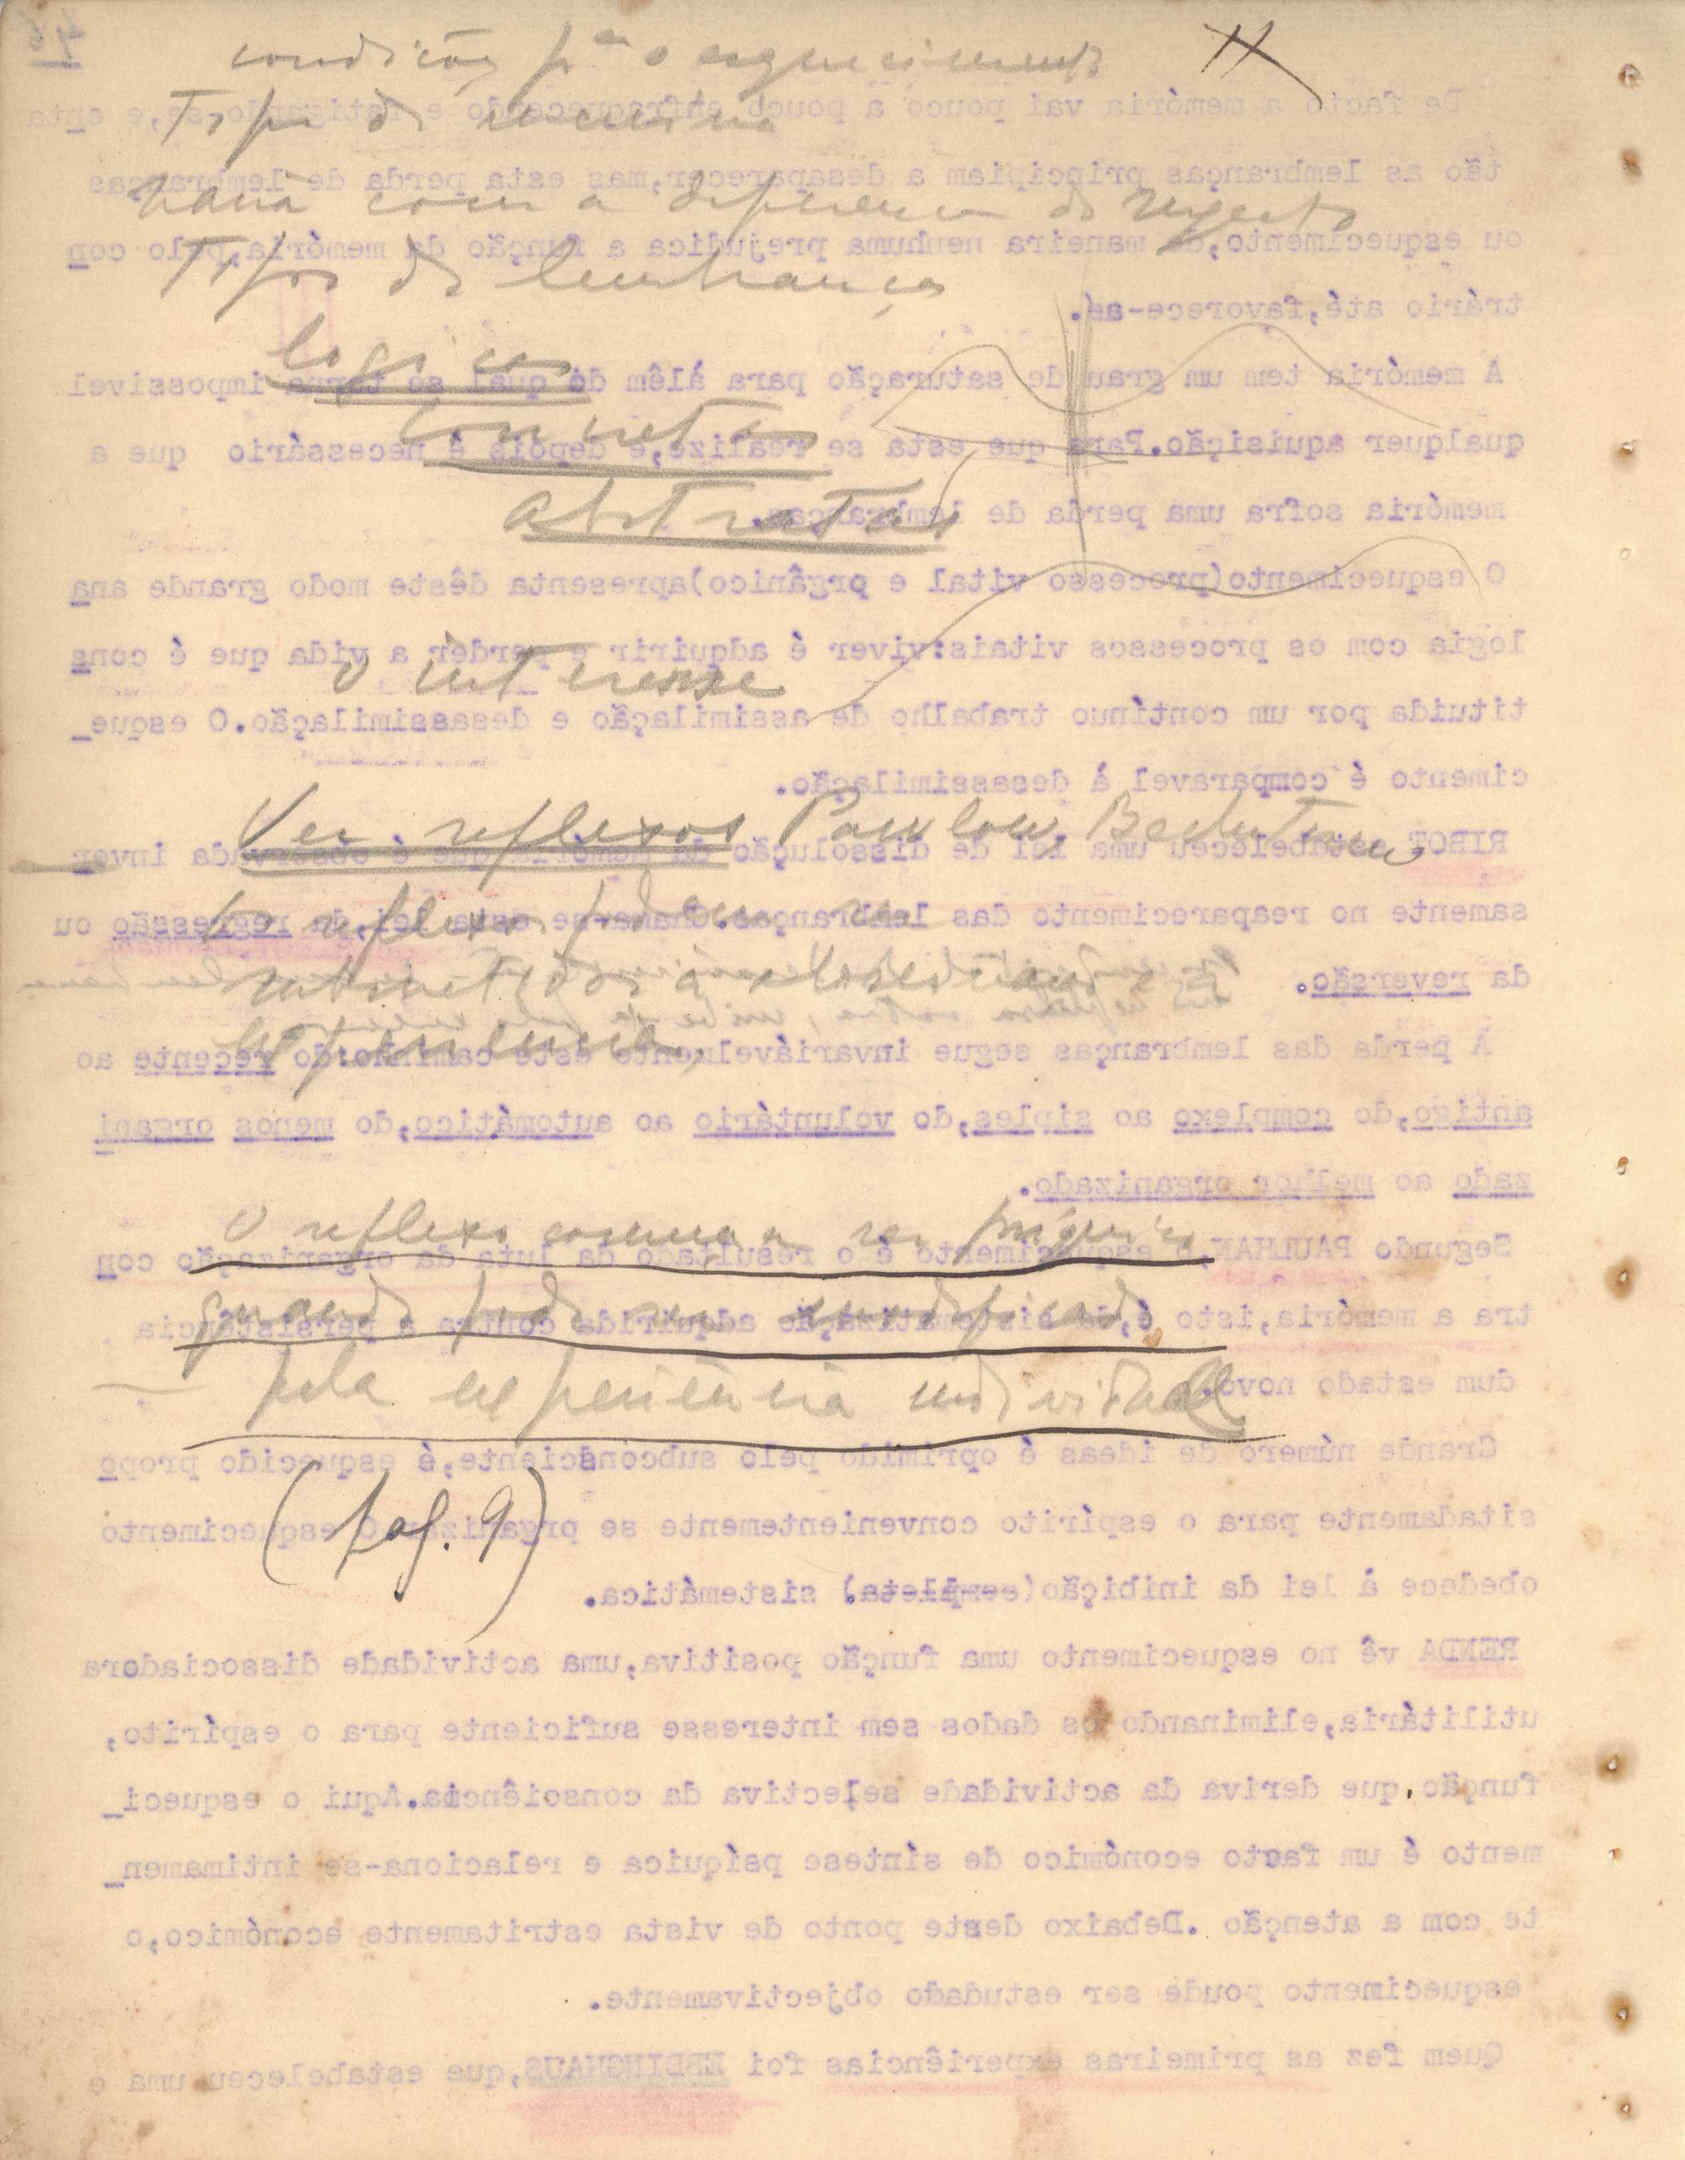 condição pª o esquecimento
Tipo de memoria
varia com a diferença do sugeito
Tipos de lembranças
logicas
concretas
abstratas
O interesse
Ver reflexos Pawlow, Bechterew
Os reflexos podem ser
a
experiencia
O reflexo comeca a ser psiquico
quando pode ser modificado
pela experiência individual
(pag. 9)
De facto a memória vai pouco a pouco enfraquecendo e fatigando-se, e enta
tão as lembranças principiam a desaparecer, mas esta perda de lembranças
ou esquecimento, de maneira nenhuma prejudica a função da memória, pelo con
trário até, favorece-as.
A memória tem um grau de saturação para àlêm do qual se torna impossivel
qualquer aquisição. Para que esta se realize, e depois é necessário que a
memória sofra uma perda de lembranças.
O esquecimento (processo vital e orgânico) apresenta dêste modo grande ana
logia com os processos vitais: viver é adquirir e perder a vida que é cons
tituida por um contínuo trabalho de assimilação e desassimilação. O esque_
cimento é comparavel à desassimilação.
RIBOT estabeleceu uma lei de dissolução da memória que é observada inver
samente no reaparecimento das lembranças. Chama-se esta lei, da regressão ou
da reversão.
A perda das lembranças segue invariávelmente este caminho: do recente ao
antigo, do complexo ao siples, do voluntário ao automático, do menos organi
zado ao melhor organizado.
Segundo PAULHAN, o esquecimento é o resultado da luta da organização con
tra a memória, isto é, da sistematização adquirida contra a persistência
dum estado novo.
Grande número de ideas é oprimido pelo subconsciente, é esquecido propo
sitadamente para o espírito convenientemente se organizar. O esquecimento
obedece à lei da inibição (completa) sistemática.
RENDA vê no esquecimento uma função positiva, uma actividade dissociadora
utilitária, eliminando os dados sem interesse suficiente para o espírito,
função, que deriva da actividade selectiva da consciência. Aqui o esqueci_
mento é um facto económico de síntese psíquica e relaciona-se intimamen_
te com a atenção. Debaixo deste ponto de vista estritamente económico, o
esquecimento poude ser estudado objectivamente.
Quem fez as primeiras experiências foi EBBINGHAUS, que estabeleceu uma e